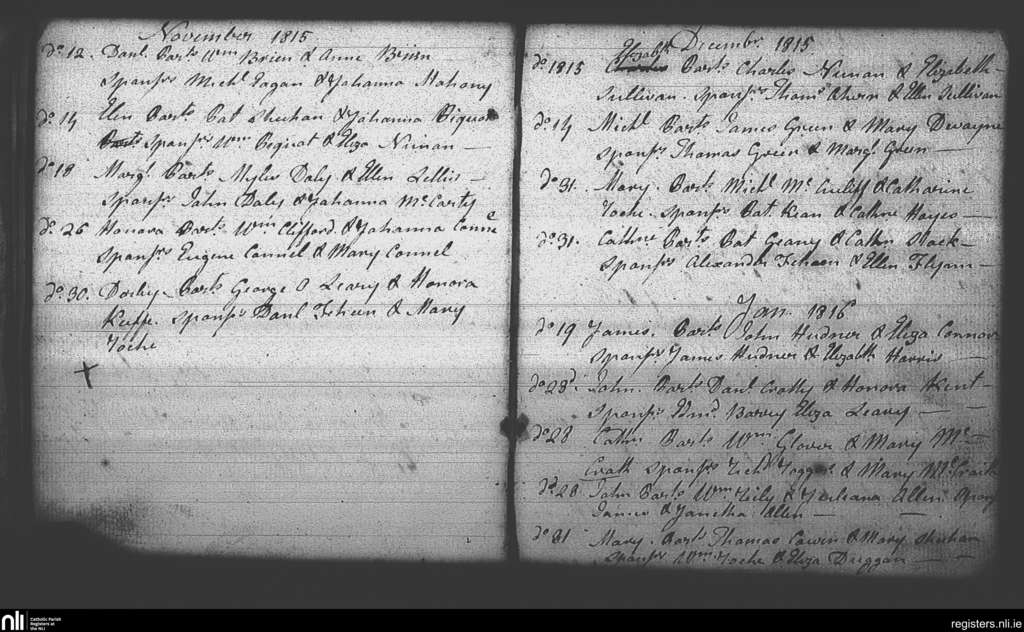 November 1815
do. 12. Danl. Parts Wm Brien & Anne Brien
Sponsrs Michl Fagan & Johanna Mahony
do. 14 Ellen Parts Pat Shuhan & Johanna
Sponsrs Wm & Eliza Nunan —
do 18 Margt. Parts Myles Daly & Ellen Lellis —
Sponsrs John Daly & Johanna McCarty
do. 26 Honora Parts Wm Clifford & Johanna Conne
Sponsrs Eugene Connel & Mary Connel
do. 30. Darby. Parts George O Leary & Honora
Keeffe. Sponsrs Danl & Mary
Roche
Decembr. 1815
Elizabth
do 1815 Parts Charles Nunan & Elizabeth
Sullivan. Sponsrs Thoms & Ellen Sullivan
do. 14 Michl Parts James Green & Mary Dwayne
Sponsrs Thomas Green & Margt. Green —
do 31. Mary. Parts Michl Mc & Catharine
Roche. Sponsrs Pat. Kean & Cathne Hayes —
do. 31. Cathne Parts Pat Geany & Cathn Slack —
Sponsrs Alexander & Ellen Flynn —
Jan. 1816
do 19 James. Parts John & Eliza Connor
Sponsrs James & Elizabth Harris —
do 28d. John. Parts Danl & Honora Kent —
Sponsrs Edmd. Barry Eliza Leary — —
do 28 Cathn Parts Wm Glover & Mary Mc —
Crath Sponsrs Richd & Mary McCraith
do. 28 John Parts Wm & Juliana Allen Spons
James & Allen — —
do 31 Mary. Parts Thomas & Mary Shuhan
Sponsrs Wm Roche & Eliza Duggan — —
nli
Catholic Parish
Registers at
the NLI
registers.nli.ie